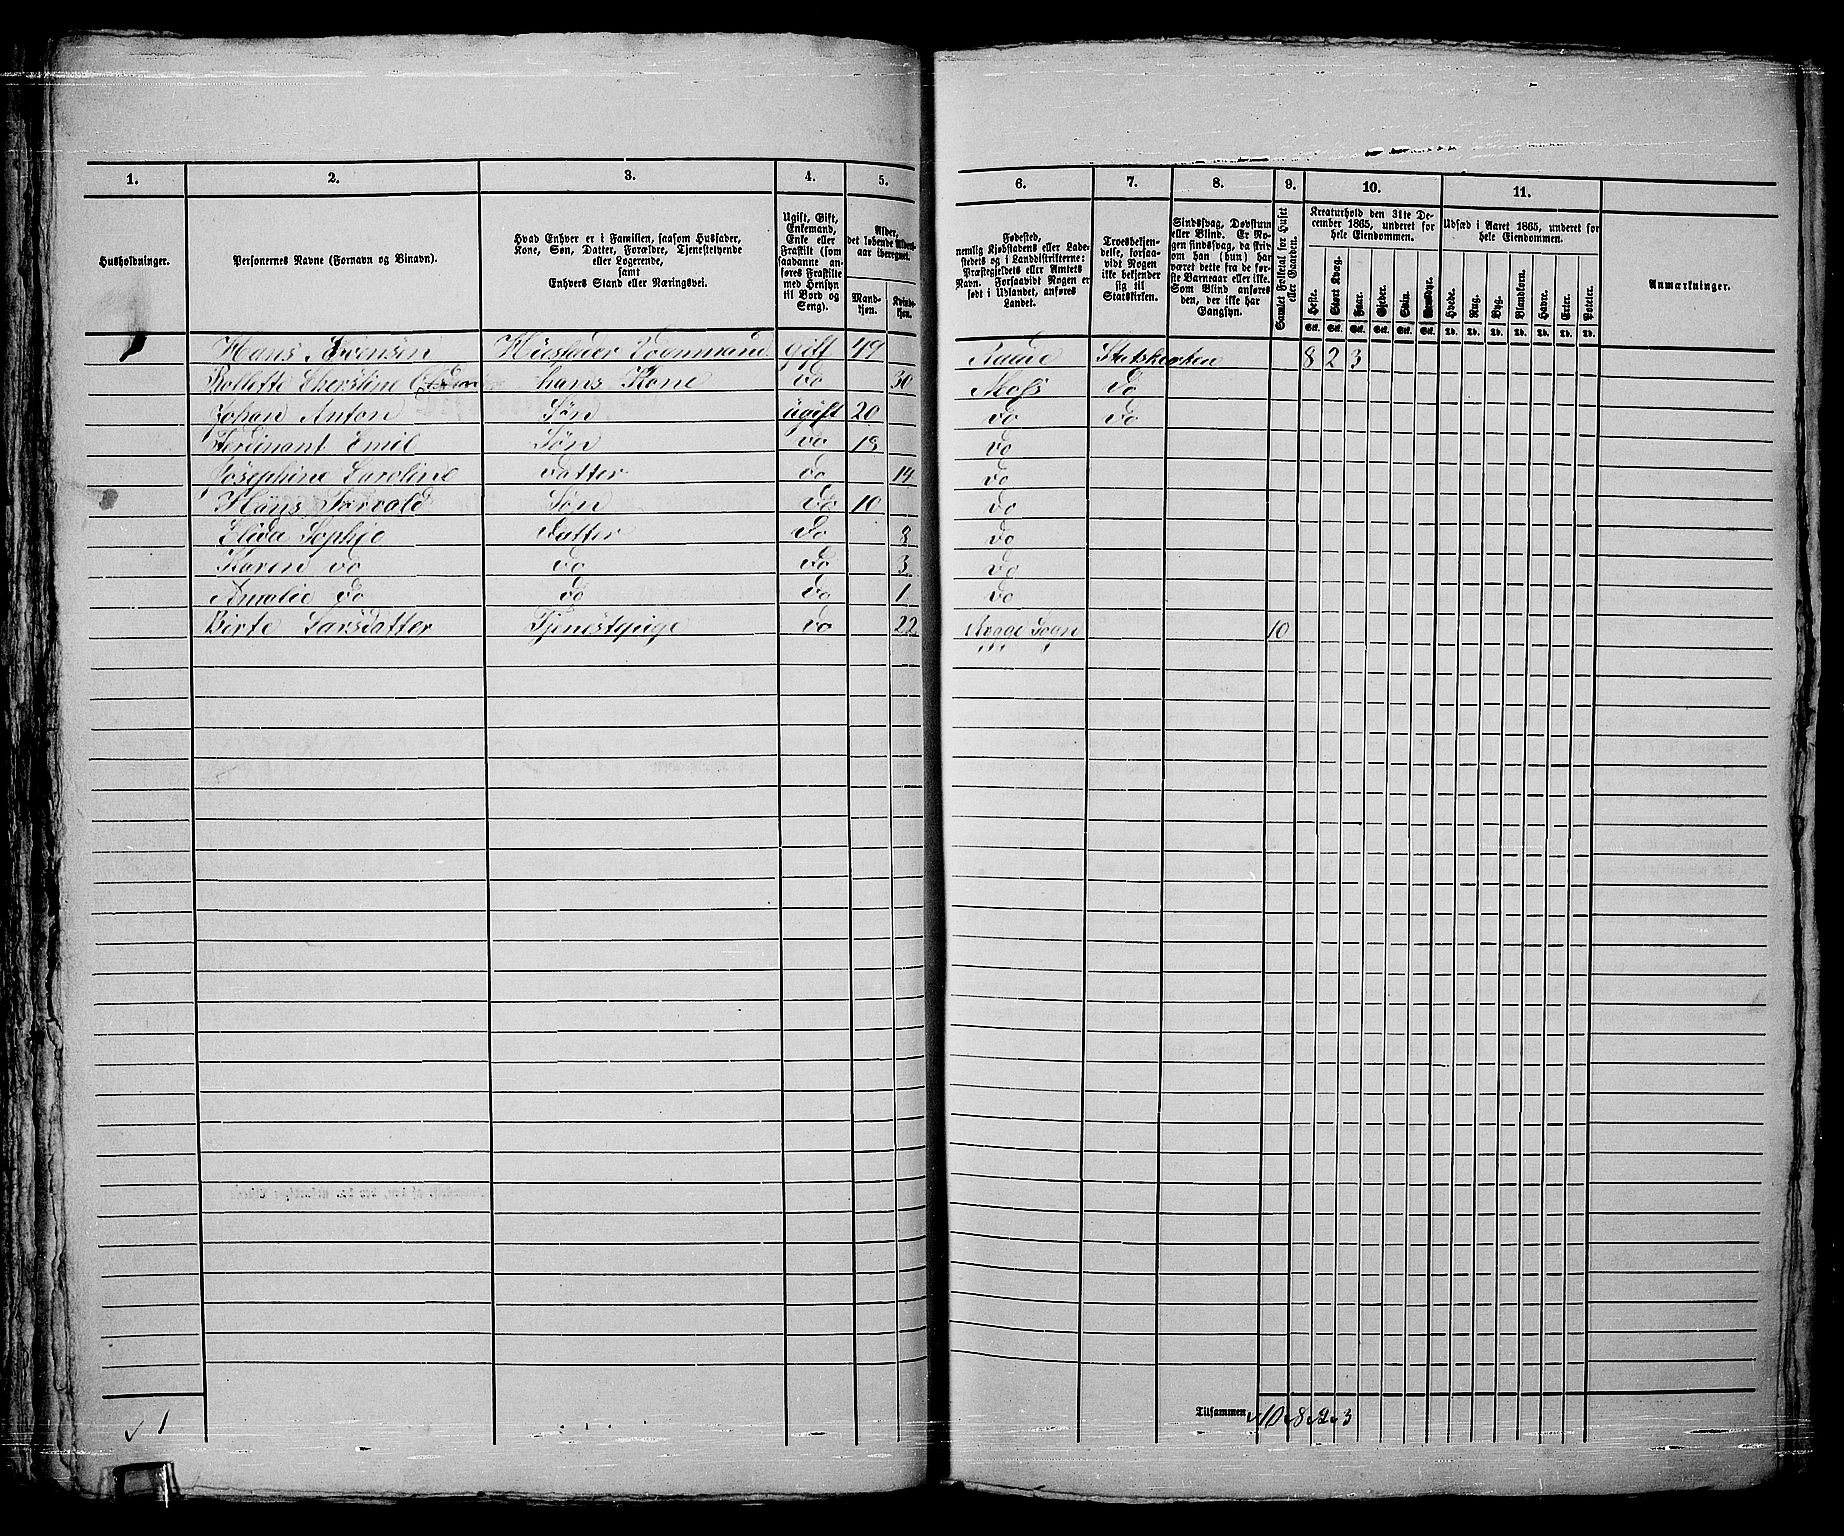 1. 2. 3. 4. 5. 6. 7. 8. 9. 10. 11.
Husholdninger.
Personernes Navne (Fornavn og Binavn).
Hvad Enhver er i Familien, saasom Husfader,
Kone, Søn, Datter, Forældre, Tjenestetyende
eller Logerende,
samt
Enhvers Stand eller Næringsvei.
Ugift, Gift,
Enkemand,
Enke eller
Fraskilt (som
saadanne anføres
Fraskilte
med Hensyn
til Bord og
Seng).
Alder,
det løbende Alders-
aar iberegnet.
Mand-
kjøn.
Kvinde-
kjøn.
Fødested,
nemlig Kjøbstadens eller Lade-
stedets og i Landdistrikterne:
Præstegjeldets eller Amtets
Navn. Forsaavidt Nogen er
født i Udlandet, anføres
Landet.
Troesbekjen-
delse, forsaa-
vidt Nogen
ikke bekjender
sig til
Statskirken.
Sindssvag, Døvstum
eller Blind. Er No-
gen sindssvag, da skriv
om han (hun) har
været dette fra de før-
ste Barneaar eller ikke.
Som Blind anføres
den, der ikke har
Gangsyn.
Samlet Folketal for Huset
eller Gaarden.
Kreaturhold den 31te De-
cember 1865, underet for
hele Eiendommen.
Heste. Stort Kvæg. Faar. Gjeder. Svin. Rensdyr.
Stk. Stk. Stk. Stk. Stk. Stk.
Udsæd i Aaret 1865, underet for
hele Eiendommen.
Hvede. Rug. Byg. Blandkorn. Havre. Erter. Poteter.
Td. Td. Td. Td. Td. Td. Td.
Anmærkninger.
Hans Svensen Husfader Vognmand gift 49 Raade Statskirken 8 2 3
hans Kone do 30 Moss do
Johan Anton Søn ugift 20 do do
Ferdinant Emil Søn do do
Josephine Caroline Datter do 14 do
Hans Torvald Søn do 10 do
Elida Sophie Datter do 8 do
Karen do do do 3 do
Amalie do do do 1 do
Birte Larsdatter Tjenestepige do 22 Sogn 10
1
Tilsammen 10 8 2 3